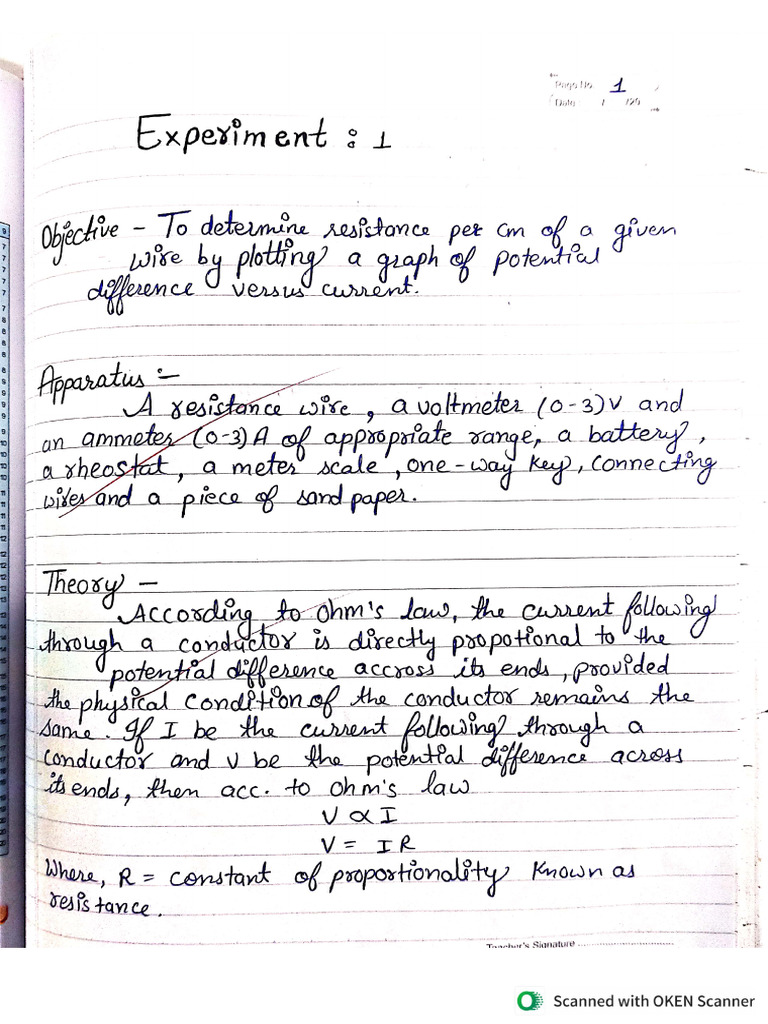 Page No. 1
Date / /20
Experiment : 1
Objective - To determine resistance per cm of a given
wire by plotting a graph of potential
difference versus current.
Apparatus :-
A resistance wire, a voltmeter (0-3)V and
an ammeter (0-3)A of appropriate range, a battery,
a rheostat, a meter scale, one-way key, connecting
wires and a piece of sand paper.
Theory -
According to Ohm's law, the current following
through a conductor is directly propotional to the
potential difference accross its ends, provided
the physical condition of the conductor remains the
same. If I be the current following through a
conductor and V be the potential difference across
its ends, then acc. to Ohm's law
V ∝ I
V = IR
Where, R = constant of proportionality known as
resistance.
Teacher's Signature ........................
Scanned with OKEN Scanner